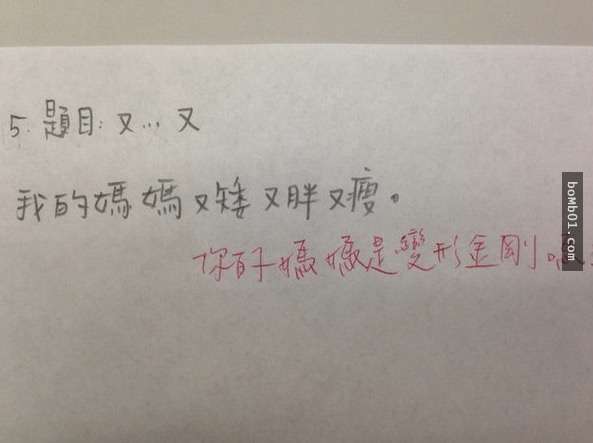 5. 題目: 又… 又
我的媽媽又矮又胖又瘦。
你的媽媽是變形金剛
bomb01.com